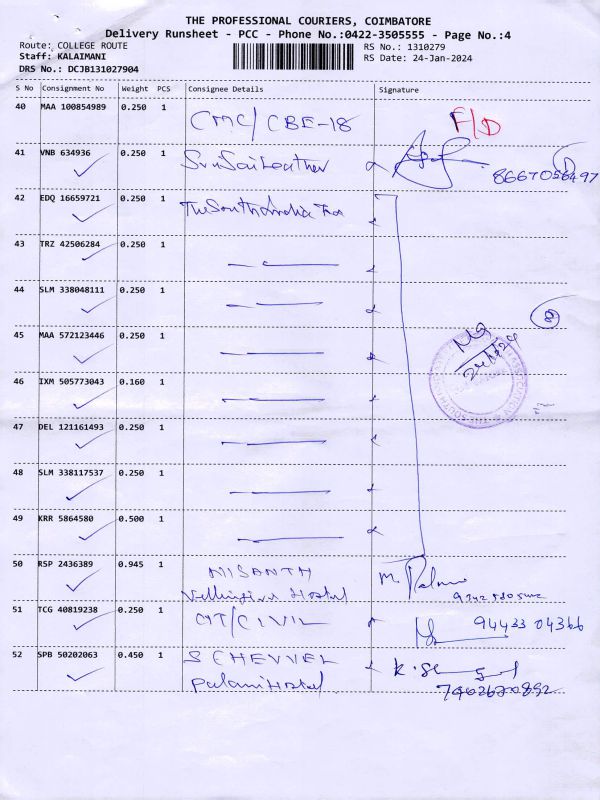 THE PROFESSIONAL COURIERS, COIMBATORE
Delivery Runsheet - PCC - Phone No.:0422-3505555 - Page No.:4
Route: COLLEGE ROUTE
RS No.: 1310279
Staff: KALAIMANI
RS Date: 24-Jan-2024
DRS No.: DCJB131027904
S No Consignment No Weight PCS Consignee Details Signature
40 MAA 100854989 0.250 1
CMC/CBE-18 F/D
41 VNB 634936 0.250 1
Sri Sai Leather
42 EDQ 16659721 0.250 1
The South India
43 TRZ 42506284 0.250 1
44 SLM 338048111 0.250 1
8
45 MAA 572123446 0.250 1
46 IXM 505773043 0.160 1
47 DEL 121161493 0.250 1
48 SLM 338117537 0.250 1
49 KRR 5864580 0.500 1
50 RSP 2436389 0.945 1
NISANTH
Hostel
51 TCG 40819238 0.250 1
CIT/CIVIL 94433 04366
52 SPB 50202063 0.450 1
Palani Hostel